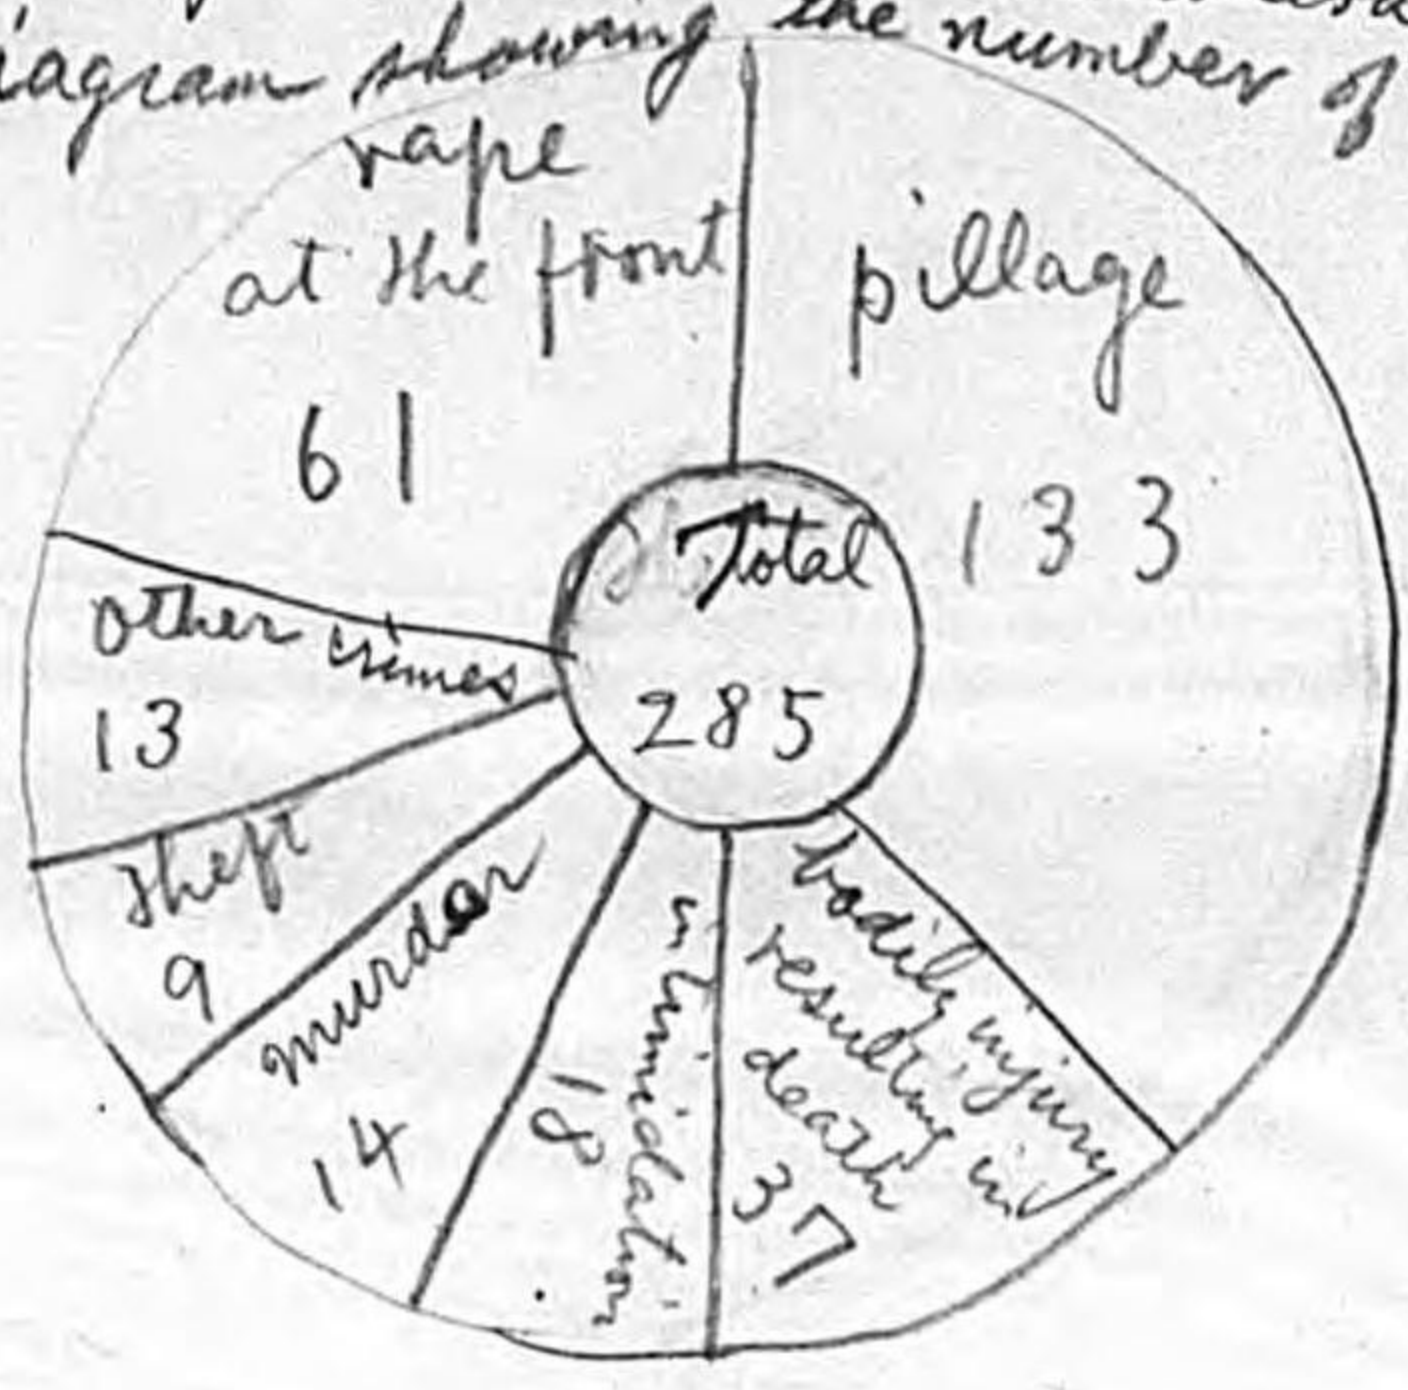 diagram showing the number of
rape
at the front
61
pillage
133
Total
285
other crimes
13
theft
9
murder
14
intimidation
18
bodily injury
resulting in
death
37